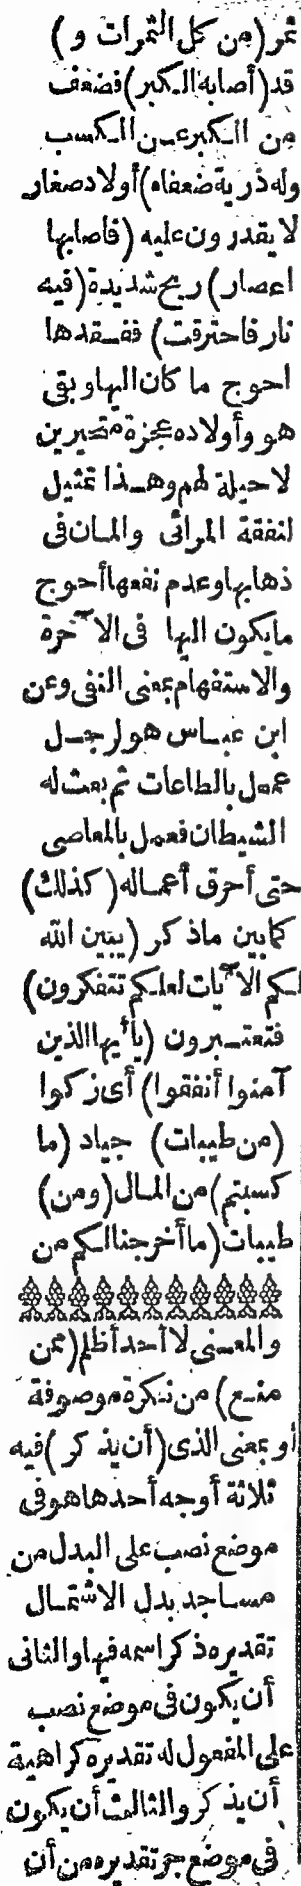 ثمر (من كل الثمرات و)
قد (أصابه الكبر) فضعف
من الكبر عن الكسب
وله ذرية ضعفاء) أولاد صغار
لا يقدرون عليه (فأصابها
اعصار) ريح شديدة (فيه
نار فاحترقت) ففقدها
احوج ما كان اليها وبقى
هو وأولاده عجزة متحيرين
لا حيلة لهم وهذا تمثيل
لنفقة المرائى والمان فى
ذهابها وعدم نفعها أحوج
ما يكون اليها فى الآخرة
والاستفهام بمعنى النفى وعن
ابن عباس هو لرجل
عمل بالطاعات ثم بعث له
الشيطان فعمل بالمعاصى
حتى أحرق أعماله (كذلك)
كما بين ماذكر (يبين الله
لكم الآيات لعلكم تتفكرون)
فتعتبرون (يا أيها الذين
آمنوا أنفقوا) أى زكوا
(من طيبات) جياد (ما
كسبتم) من المال (ومن)
طيبات (ما أخرجنا لكم من
والمعنى لا أحد أظلم (ممن
منع) من نكرة موصوفة
أو بمعنى الذى (أن يذكر) فيه
ثلاثة أوجه أحدها هو فى
موضع نصب على البدل من
مساجد بدل الاشتمال
تقديره ذكر اسمه فيها والثانى
أن يكون فى موضع نصب
على المفعول له تقديره كراهية
أن يذكر والثالث أن يكون
فى موضع جر تقديره من أن